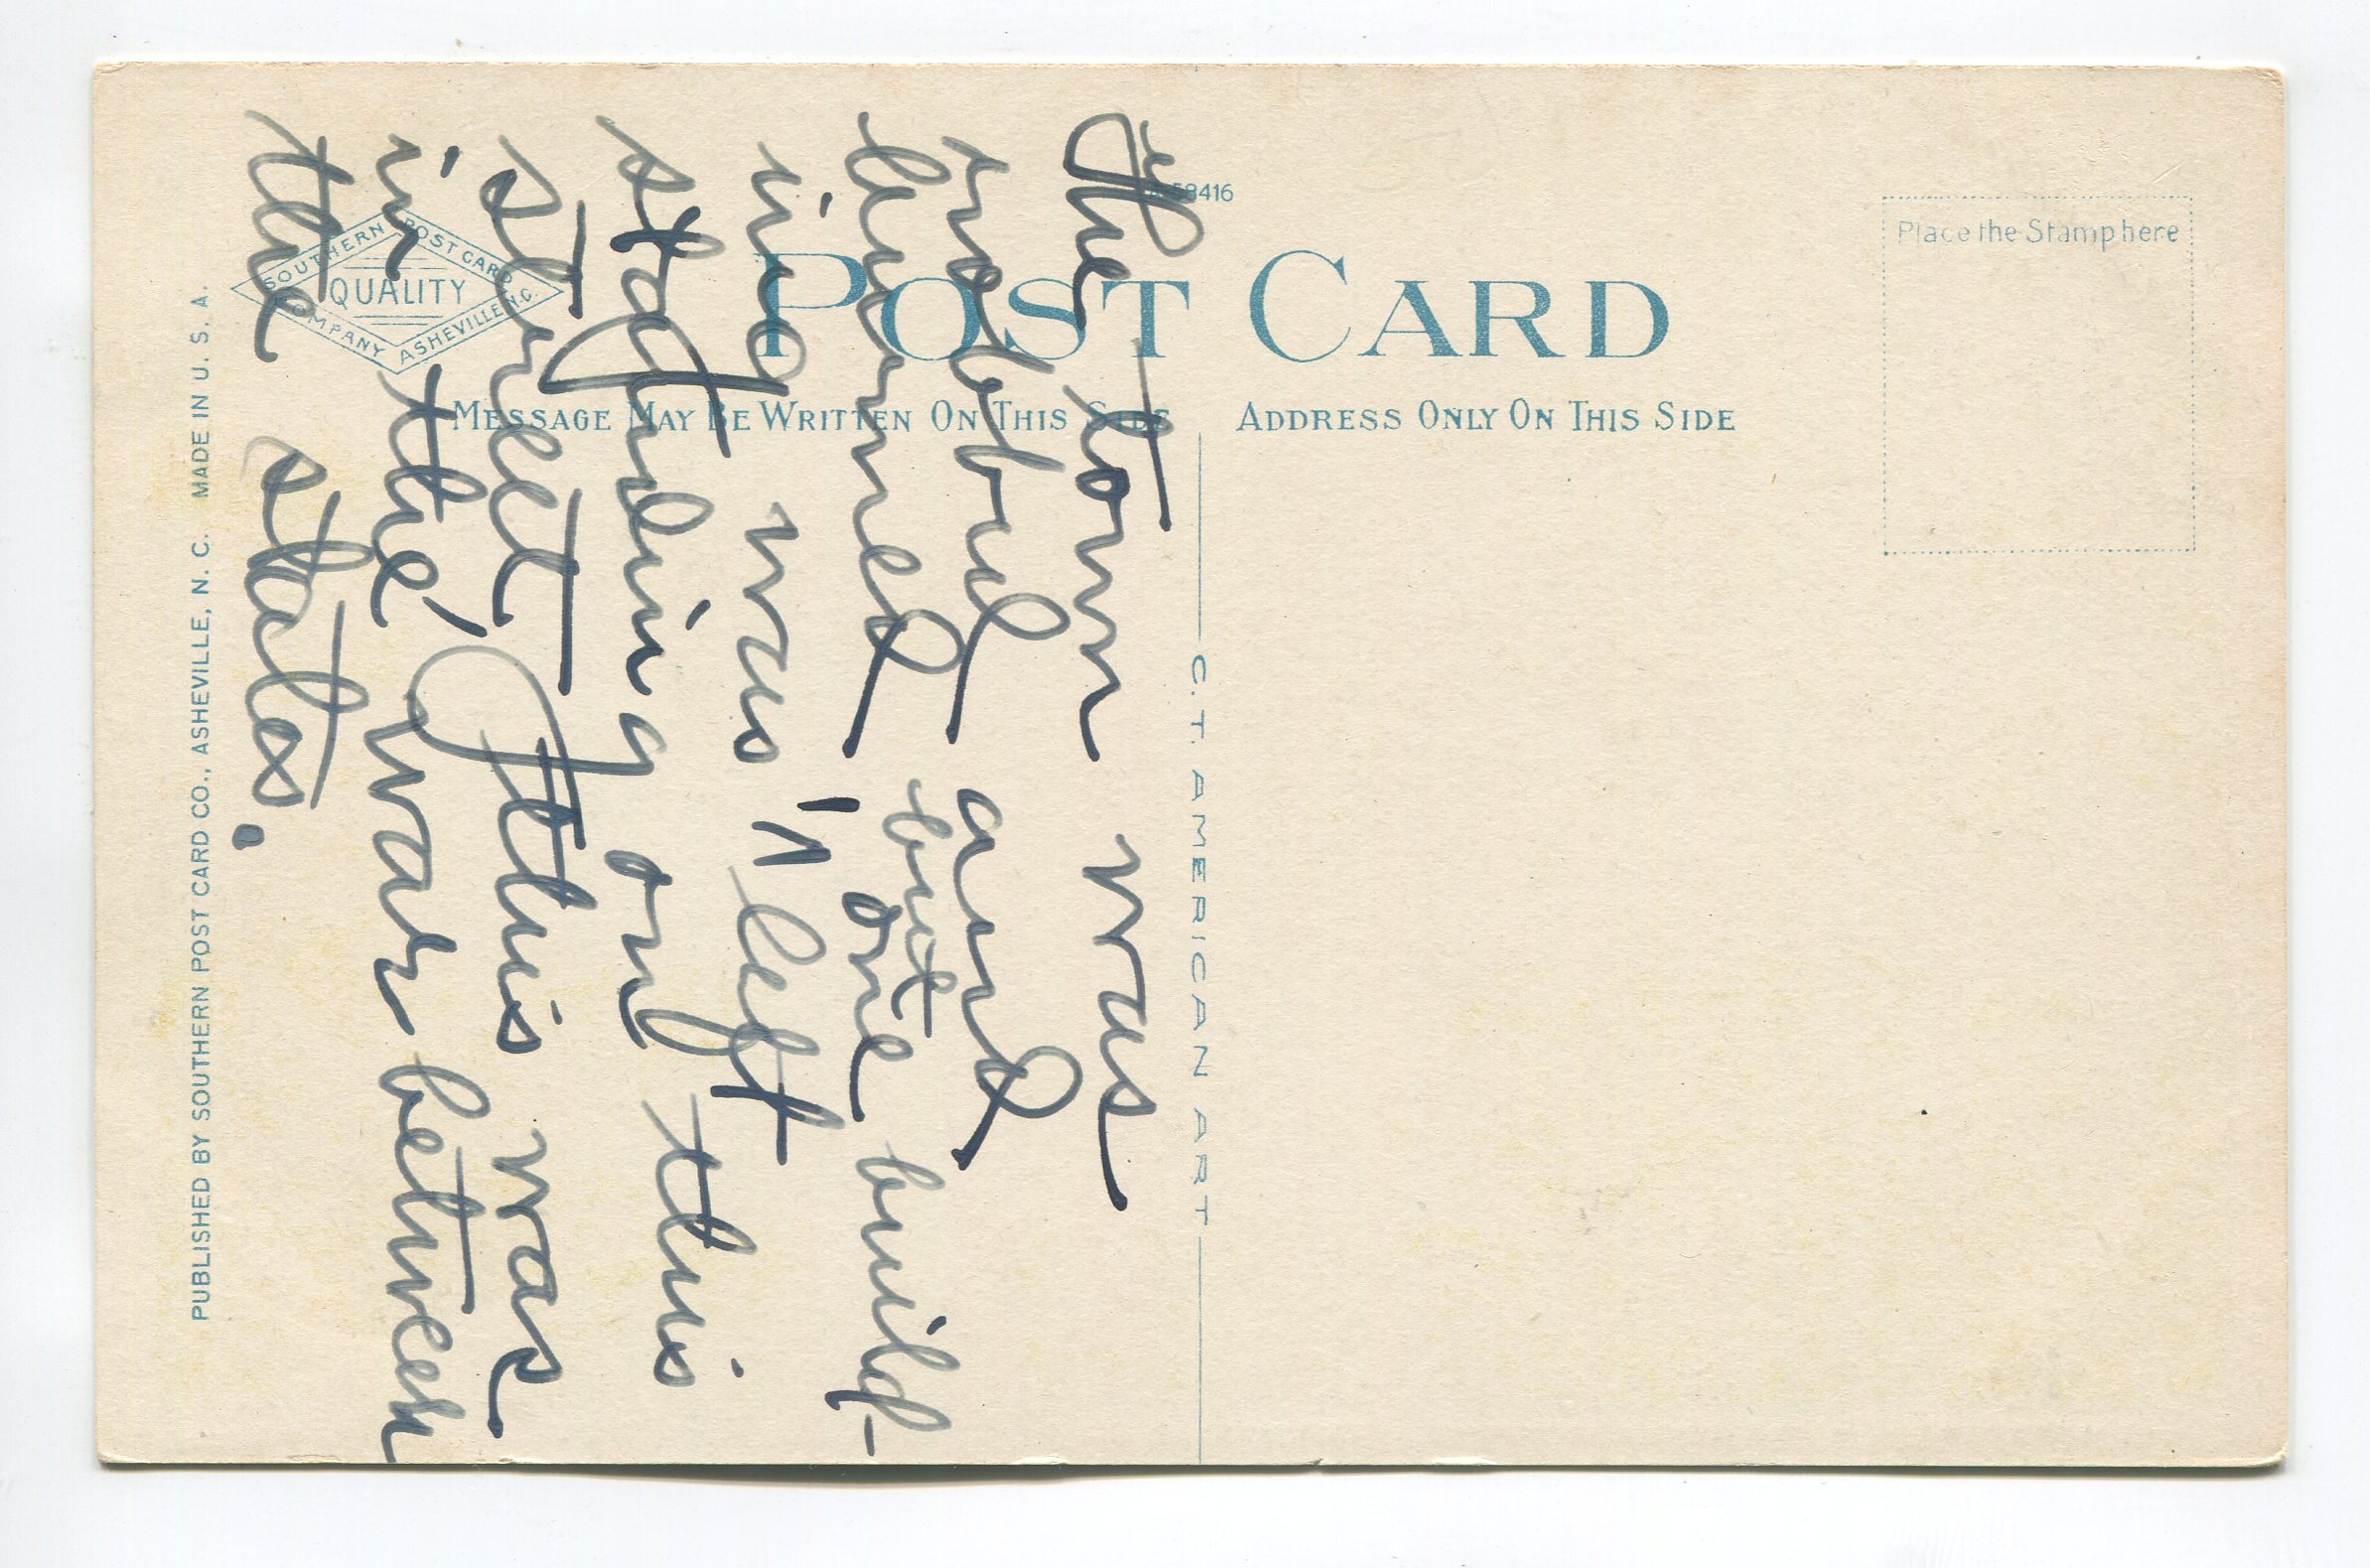 A-58416
Place the Stamp here
POST CARD
MESSAGE MAY BE WRITTEN ON THIS SIDE
ADDRESS ONLY ON THIS SIDE
SOUTHERN POST CARD
QUALITY
COMPANY ASHEVILLE N.C.
The town was
robbed and
burned, but one build-
ing was left
standing on this
street, this was
in the war between
the states.
C. T. AMERICAN ART
PUBLISHED BY SOUTHERN POST CARD CO., ASHEVILLE, N. C. MADE IN U. S. A.